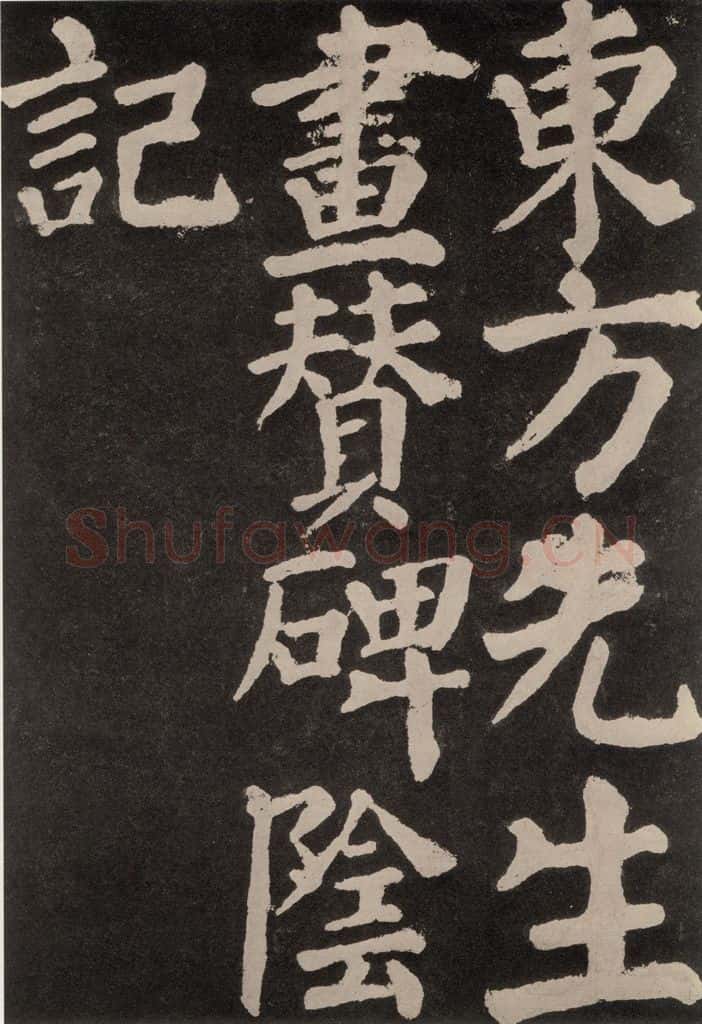 東方先生
畫賛碑陰
記
Shufawang.CN